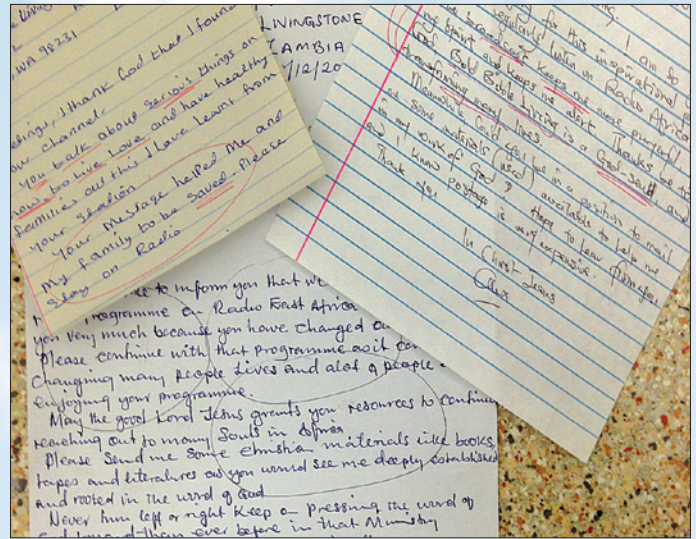 WA 98231
I thank God that I found
your channel.
you talk about serious things on
how to live love and have healthy
families out this I have learnt from
your station.
Your Message helped Me and
My family to be saved. Please
stay on Radio
LIVINGSTONE
ZAMBIA
/12/20
for this inspirational
I am so
regularly listen on Radio Africa
my spirit and keeps me alert. Thanks
Bold Bible Living is a God-sent, and
transforming many lives.
Meanwhile could you be in a position to mail
me some materials (used) available to help me
in my work of God? Hope to hear from you
and I know postage is very expensive.
Thank you
In Christ Jesus
to inform you that
Programme on Radio East Africa
you very much because you have changed
Please continue with that programme as it
changing many people lives and alot of people
enjoying your programme.
May the good Lord Jesus grants you resources to continue
reaching out to many Souls in Africa
Please Send me some christian materials like books,
tapes and literatures as you would see me deeply established
and rooted in the word of God
Never turn left or right Keep on pressing the word of
ever before in that Ministry